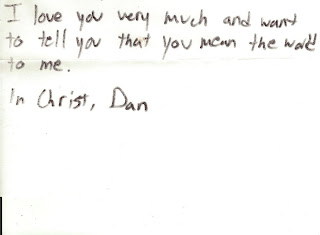 I love you very much and want
to tell you that you mean the world
to me.
In Christ, Dan